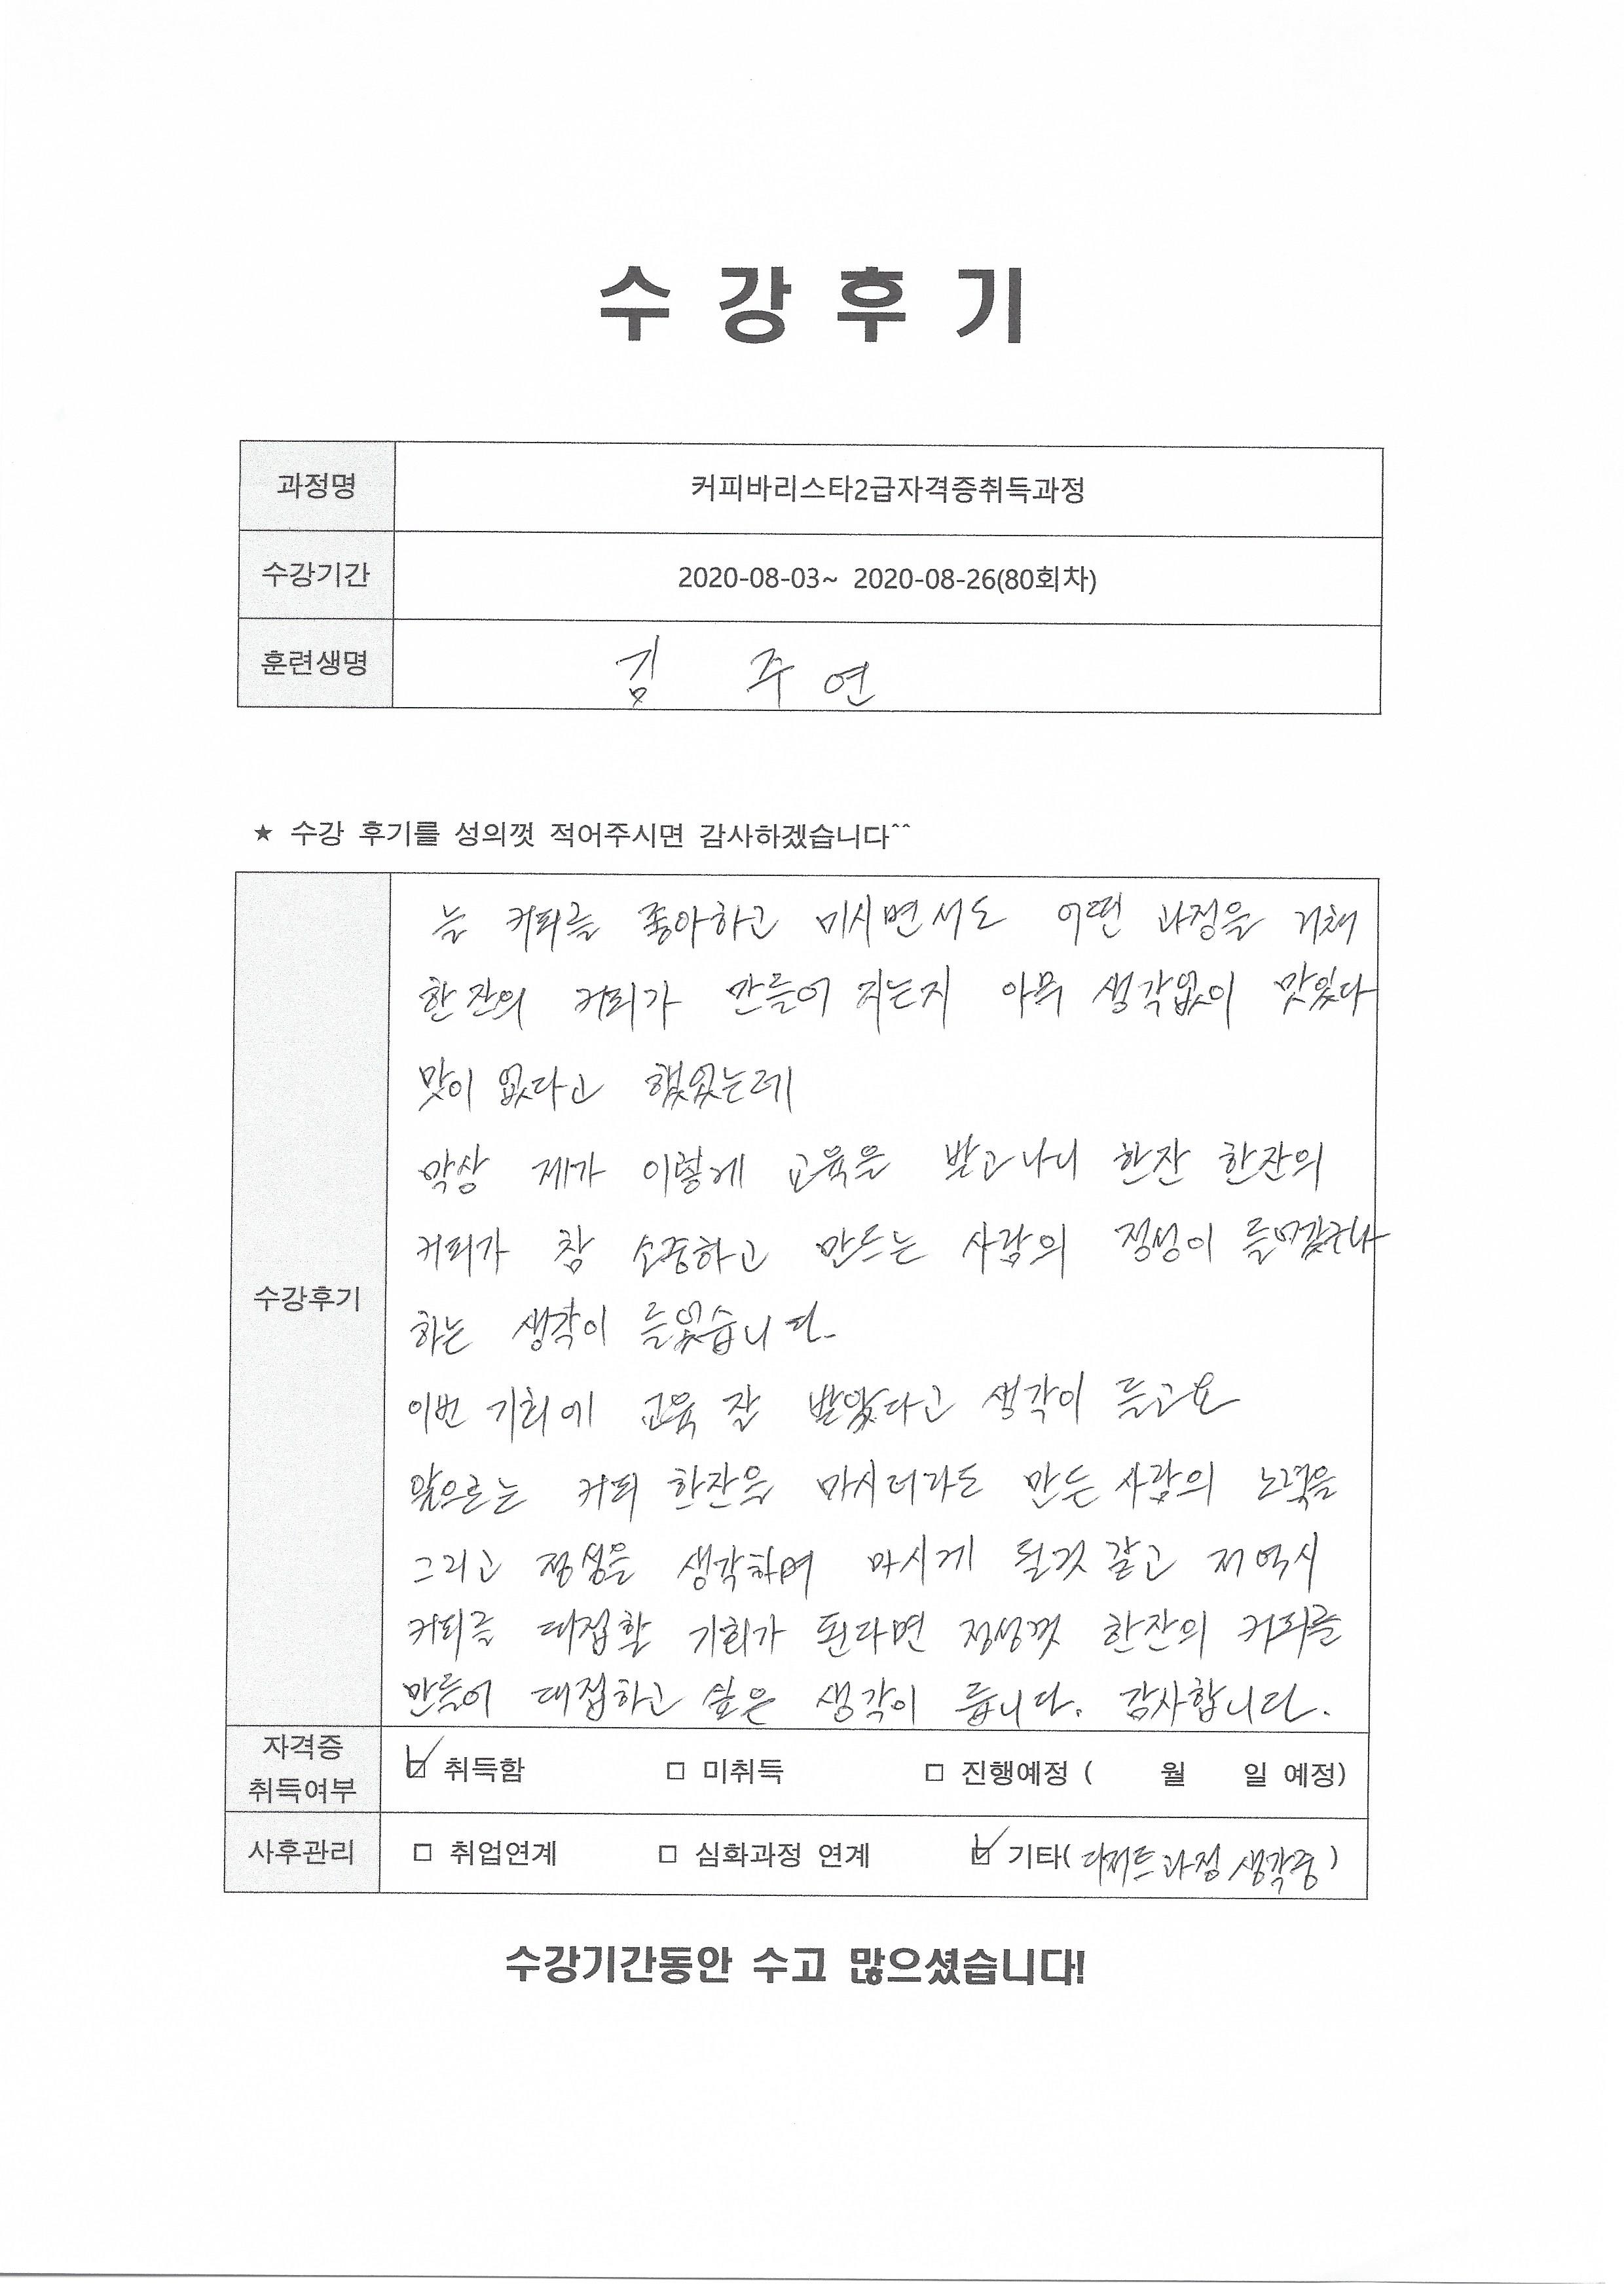 수강후기
과정명 커피바리스타2급자격증취득과정
수강기간 2020-08-03~ 2020-08-26(80회차)
훈련생명 김 주연
★ 수강 후기를 성의껏 적어주시면 감사하겠습니다^^
수강후기
늘 커피를 좋아하고 마시면서도 어떤 과정을 거쳐
한잔의 커피가 만들어 지는지 아무 생각없이 맛있다
맛이 없다고 했었는데
막상 제가 이렇게 교육을 받고나니 한잔 한잔의
커피가 참 소중하고 만드는 사람의 정성이 들어갔구나
하는 생각이 들었습니다.
이번 기회에 교육 잘 받았다고 생각이 들고요
앞으로는 커피 한잔을 마시더라도 만든 사람의 노력을
그리고 정성을 생각하며 마시게 될것 같고 저 역시
커피를 대접할 기회가 된다면 정성껏 한잔의 커피를
만들어 대접하고 싶은 생각이 듭니다. 감사합니다.
자격증 취득여부 ☑ 취득함 □ 미취득 □ 진행예정 ( 월 일 예정)
사후관리 □ 취업연계 □ 심화과정 연계 ☑ 기타( 디저트과정 생각중 )
수강기간동안 수고 많으셨습니다!